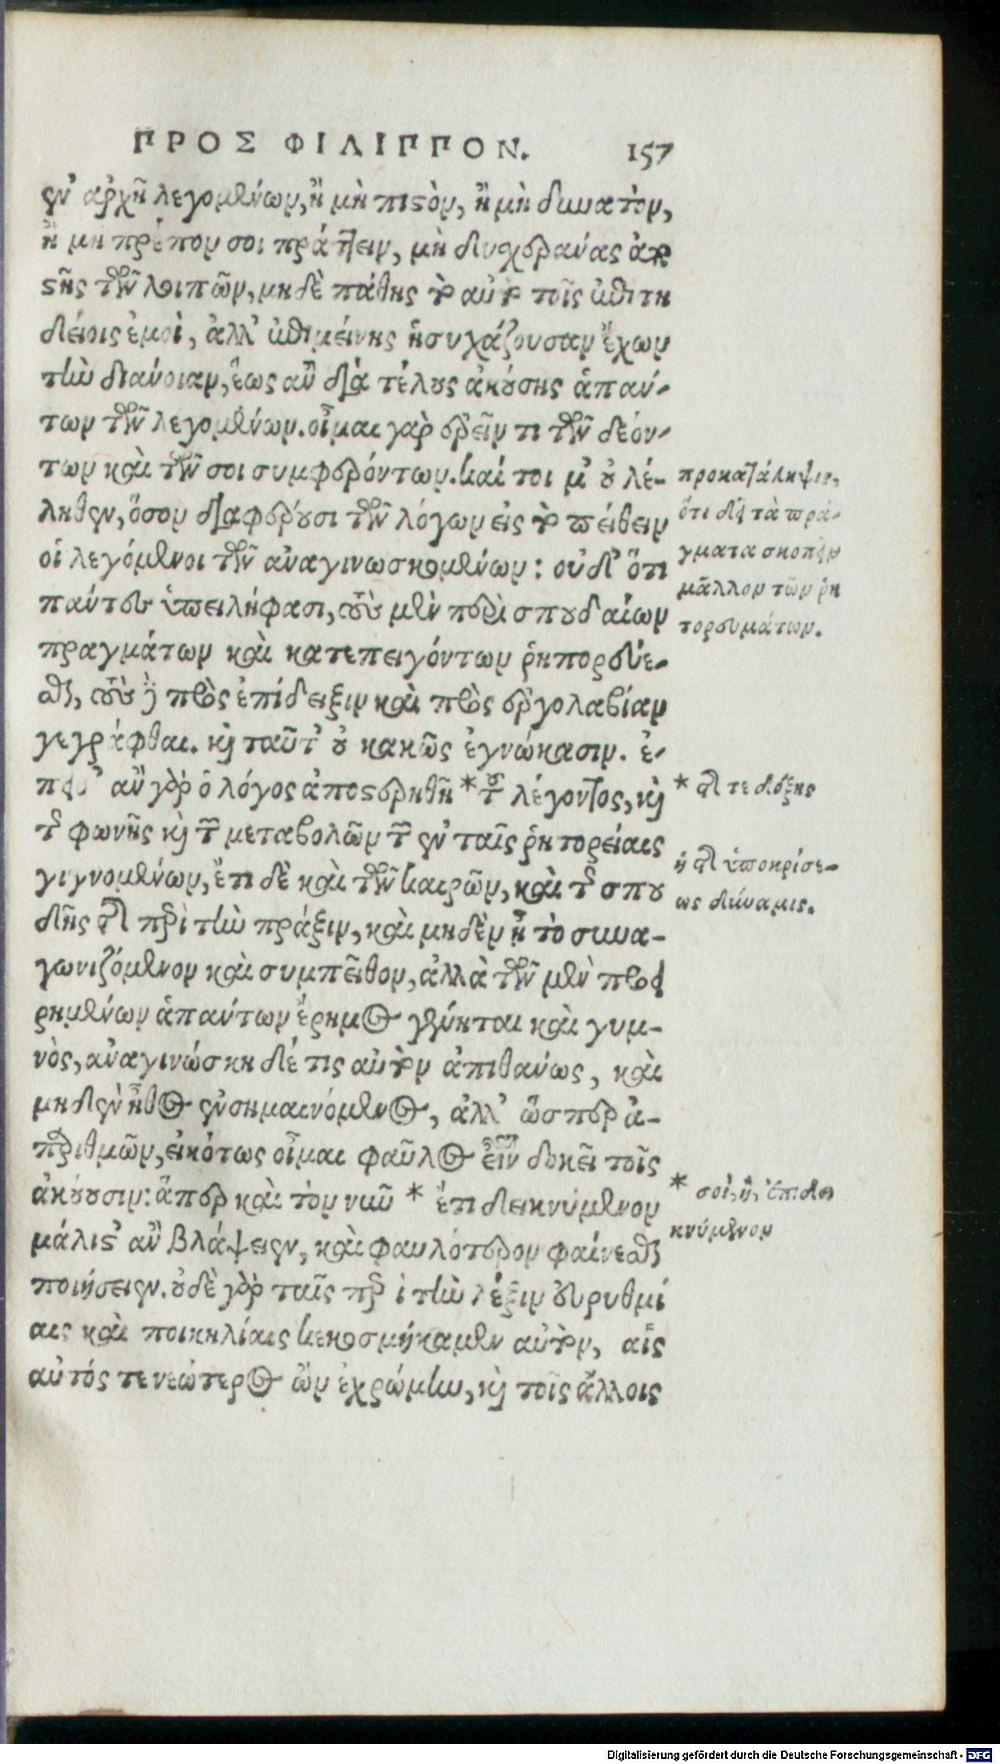 ΠΡΟΣ ΦΙΛΙΠΠΟΝ. 157
ἐν ἀρχῇ λεγομένων, ἢ μὴ πιστὸν, ἢ μὴ δυνατὸν,
ἢ μὴ πρέπον σοι πράττειν, μὴ δυσχεράνας ἀπο
στῇς τῶν λοιπῶν, μηδὲ πάθῃς τὸ αὐτὸ τοῖς ἐπιτη
δείοις ἐμοὶ, ἀλλ' ἐπιμείνῃς ἡσυχάζουσαν ἔχων
τὴν διάνοιαν, ἕως ἂν διὰ τέλους ἀκούσῃς ἁπάν-
των τῶν λεγομένων. οἶμαι γὰρ ἐρεῖν τι τῶν δεόν-
των καὶ τῶν σοι συμφερόντων. καί τοι μ' οὐ λέ-
ληθεν, ὅσον διαφέρουσι τῶν λόγων εἰς τὸ πείθειν
οἱ λεγόμενοι τῶν ἀναγινωσκομένων: οὐδ' ὅτι
πάντες ὑπειλήφασι, τοὺς μὲν περὶ σπουδαίων
πραγμάτων καὶ κατεπειγόντων ῥητορεύε-
σθαι, τοὺς δὲ πρὸς ἐπίδειξιν καὶ πρὸς ἐργολαβίαν
γεγράφθαι. καὶ ταῦτ' οὐ κακῶς ἐγνώκασιν. ἐ-
πειδ' ἂν γὰρ ὁ λόγος ἀποστερηθῇ * τοῦ λέγοντος, καὶ
τῆς φωνῆς καὶ τῶν μεταβολῶν τῶν ἐν ταῖς ῥητορείαις
γιγνομένων, ἔτι δὲ καὶ τῶν καιρῶν, καὶ τῆς σπου
δῆς τῆς περὶ τὴν πρᾶξιν, καὶ μηδὲν ᾖ τὸ συνα-
γωνιζόμενον καὶ συμπεῖθον, ἀλλὰ τῶν μὲν προει
ρημένων ἁπάντων ἔρημος γένηται καὶ γυμ-
νὸς, ἀναγινώσκῃ δέ τις αὐτὸν ἀπιθάνως, καὶ
μηδὲν ἦθος ἐνσημαινόμενος, ἀλλ' ὥσπερ ἀ-
παριθμῶν, εἰκότως οἶμαι φαῦλος εἶναι δοκεῖ τοῖς
ἀκούουσιν: ἅπερ καὶ τὸν νῦν * ἔτι δεικνύμενον
μάλιστ' ἂν βλάψειεν, καὶ φαυλότερον φαίνεσθαι
ποιήσειεν. οὐδὲ γὰρ ταῖς περὶ τὴν λέξιν εὐρυθμί
αις καὶ ποικιλίαις κεκοσμήκαμεν αὐτὸν, αἷς
αὐτός τε νεώτερος ὢν ἐχρώμην, καὶ τοῖς ἄλλοις
προκατάληψις,
ὅτι δεῖ τὰ πρά-
γματα σκοπεῖν
μᾶλλον τῶν ῥη
τορευμάτων.
* τῆς τε δόξης
ἢ τῆς ὑποκρίσε-
ως δύναμις.
* σοὶ, ἢ, ἐπιδει
κνύμενον
Digitalisierung gefördert durch die Deutsche Forschungsgemeinschaft - DFG